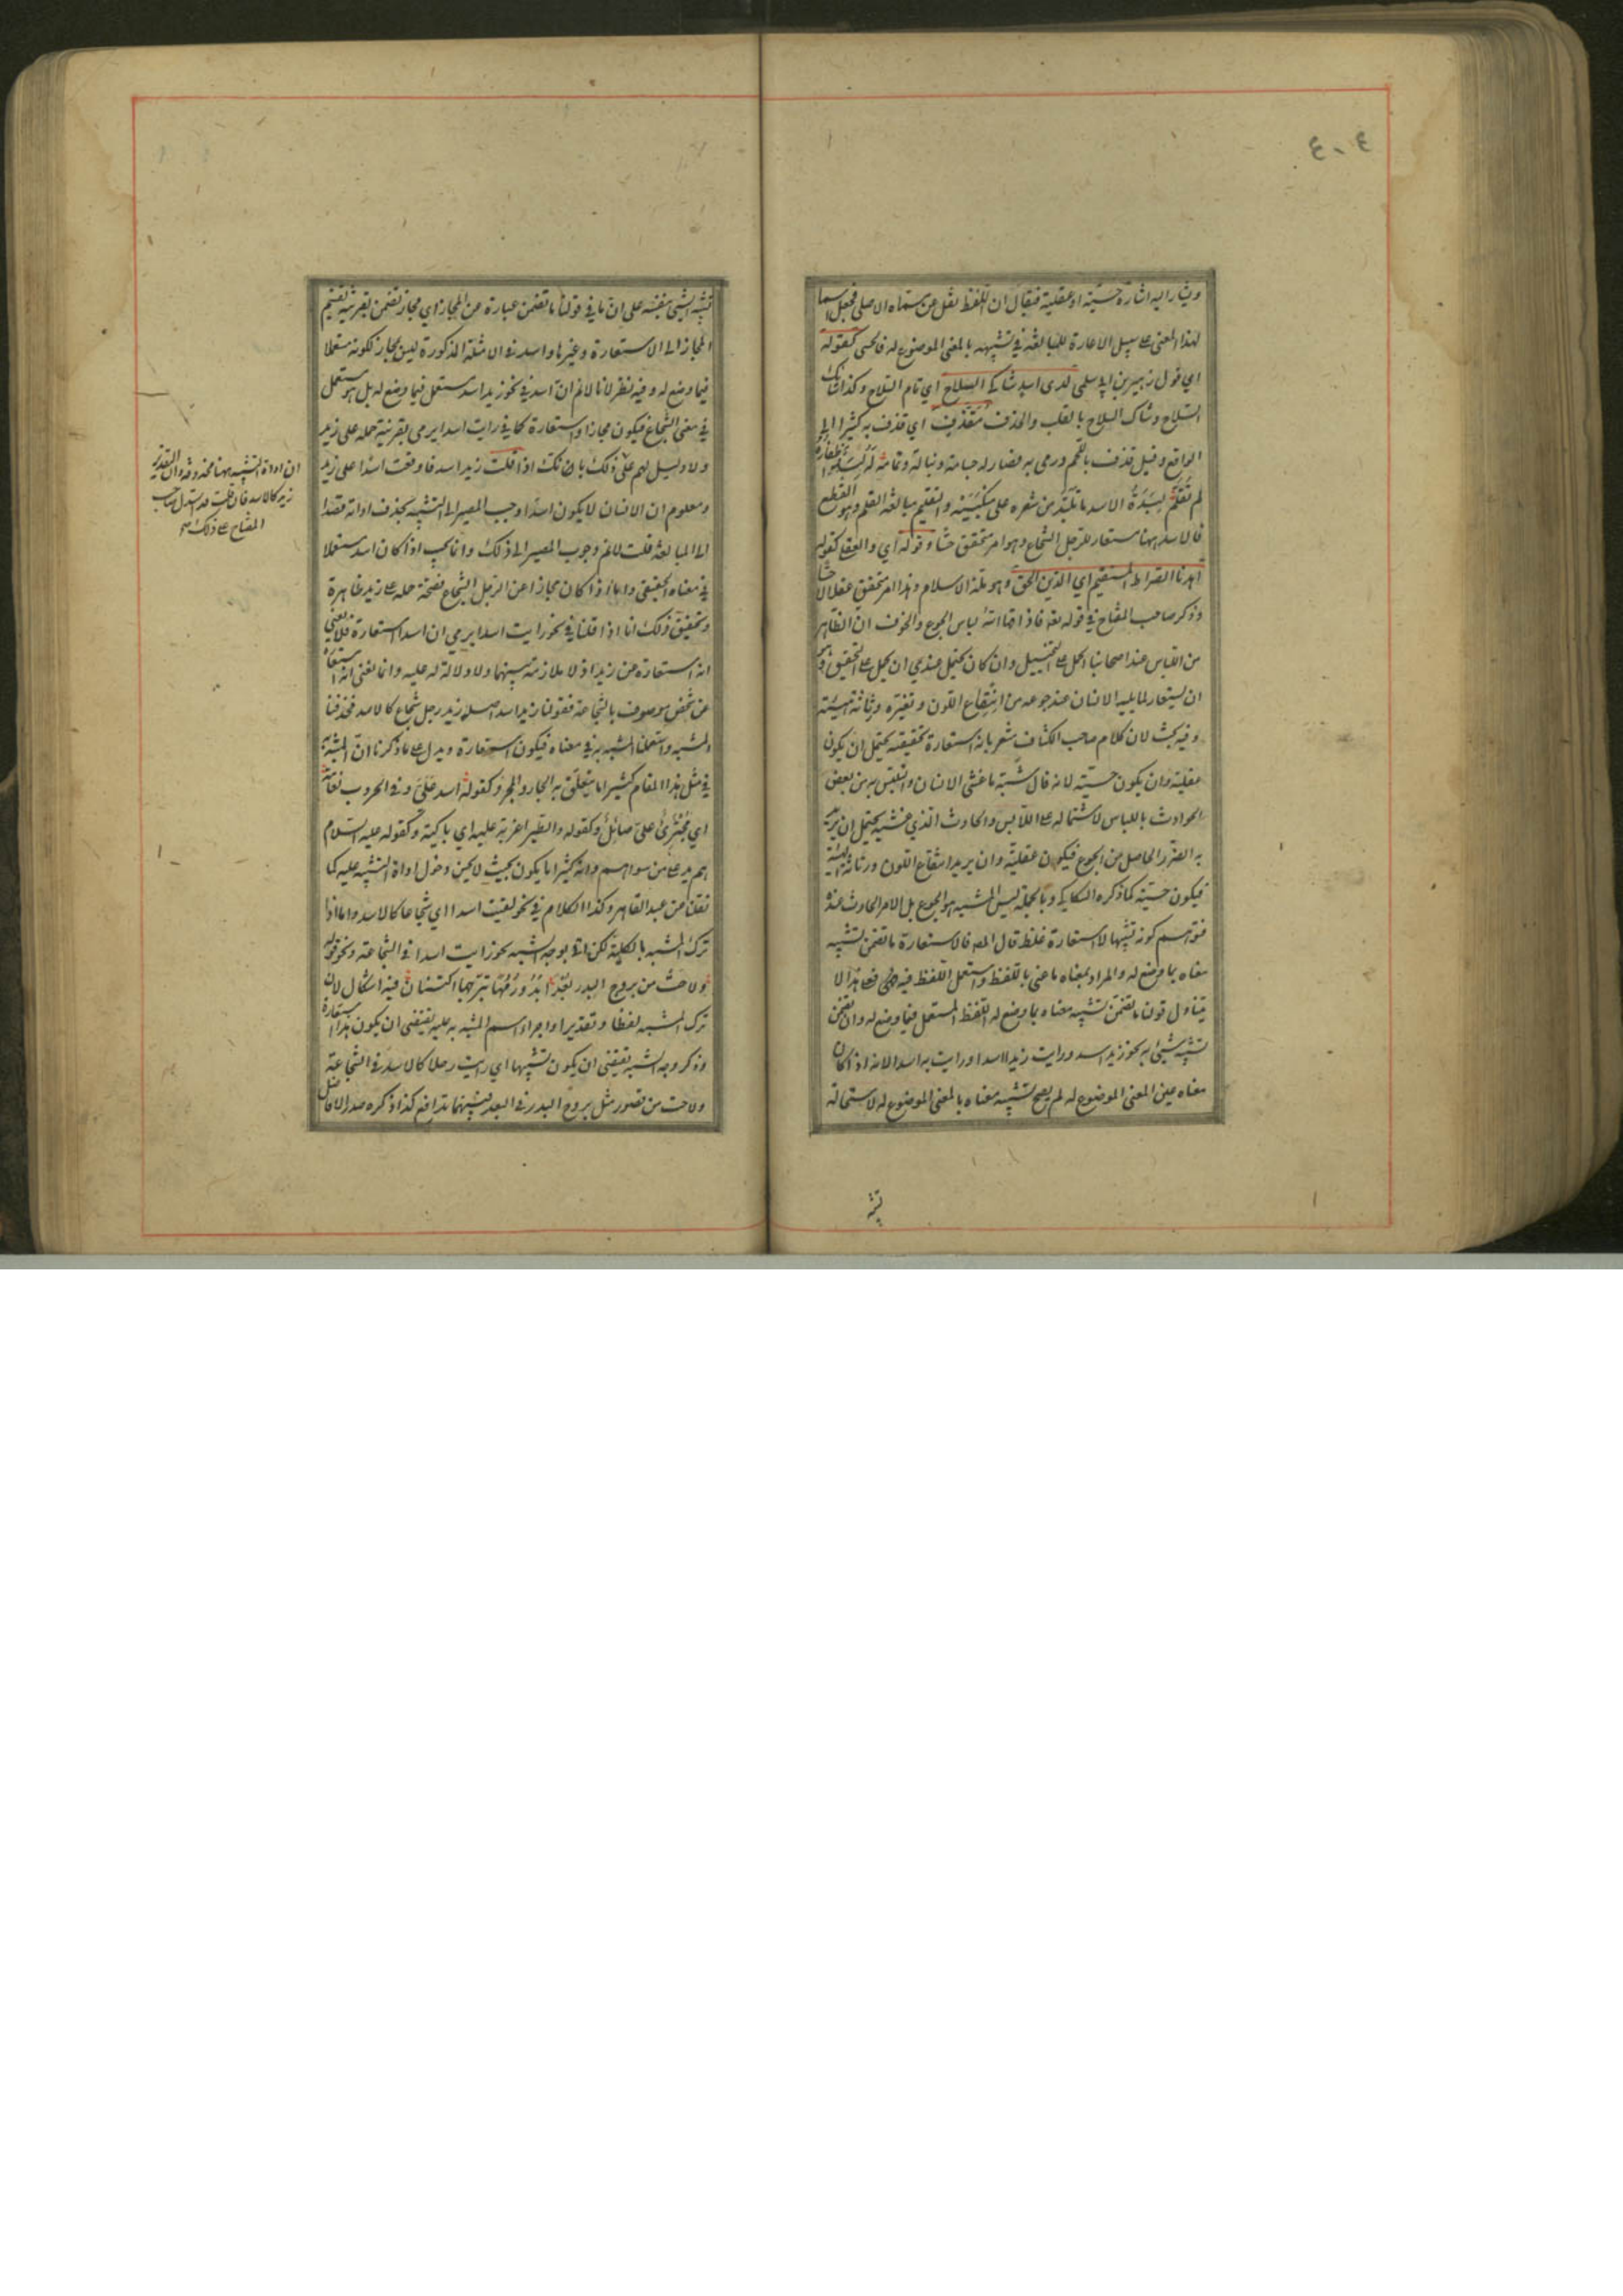 ويشار اليه اشارة حسّية او عقلية فيقال ان اللفظ نقل عن مسمّاه الاصلى فجعل اسما
لهذا المعنى على سبيل الاعارة للمبالغة فى تشبيهه بالمعنى الموضوع له فالحسى كقوله
اي قول زهير بن ابى سلمى لدى اسد شاكى السلاح اي تام السلاح وكذا شائك
السلاح وشاك السلاح بالقلب والحذف مقذف اي قذف به كثيرا الى
الوقايع وقيل قذف باللحم ورمى به فصار له جسامة ونبالة وتمامه له لبد اظفاره
لم تقلم لبدة الاسد ما تلبّد من شعره على منكبيه والتقليم مبالغة القلم وهو القطع
فالاسد ههنا مستعار للرجل الشجاع وهو امر متحقق حسّا وقوله اي والعقلى كقوله
اهدنا الصراط المستقيم اي الدين الحق وهو ملة الاسلام وهذا امر متحقق عقلا لا حسّا
وذكر صاحب المفتاح فى قوله تعه فاذاقها الله لباس الجوع والخوف ان الظاهر
من اللباس عند اصحابنا الحمل على التخييل وان كان يحتمل عندي ان يحمل على التحقيق وهو
ان يستعار لما يلبسه الانسان عند جوعه من انتقاع اللون وتغيره ورثاثة هيئته
وفيه بحث لان كلام صاحب الكشاف مشعر بانه استعارة تحقيقية يحتمل ان يكون
عقلية وان يكون حسّية لانه قال شبّه ما غشى الانسان والتبس به من بعض
الحوادث باللباس لاشتماله على اللابس والحادث الذي غشيه يحتمل ان يريد
به الضرر الحاصل من الجوع فيكون عقلية وان يريد انتقاع اللون ورثاثة الهيئة
فيكون حسّية كما ذكره السكاكى وبالجملة ليس المشبه هو الجوع بل الامر الحادث عنده
فتوهم كونه تشبيها لا استعارة غلط قال المص فالاستعارة ما تضمن تشبيه
معناه بما وضع له والمراد بمعناه ما عنى باللفظ واستعمل اللفظ فيه فعلى هذا لا
يتناول قولنا ما تضمّن تشبيه معناه بما وضع له اللفظ المستعمل فيما وضع له وان تضمن
تشبيه شيئ به نحو زيد اسد ورايت زيدا اسدا ورايت به اسدا لانه اذا كان
معناه عين المعنى الموضوع له لم يصح تشبيه معناه بالمعنى الموضوع له لاستحالة
تشبيه
تشبيه الشيئ بنفسه على ان ما فى قولنا ما تضمن عبارة عن المجاز اي مجاز تضمن بقرينة تقسيم
المجاز الى الاستعارة وغيرها واسد فى الامثلة المذكورة ليس بمجاز لكونه مستعملا
فيما وضع له وفيه نظر لانا لا نم ان اسد فى نحو زيد اسد مستعمل فيما وضع له بل هو مستعمل
فى معنى الشجاع فيكون مجازا واستعارة كما فى رايت اسدا يرمى بقرينة حمله على زيد
ولا دليل لهم على ذلك بانك اذا قلت زيد اسد فاوقعت اسدا على زيد
ومعلوم ان الانسان لا يكون اسدا وجب المصير الى التشبيه بحذف اداته قصدا
الى المبالغة قلت لا نم وجوب المصير الى ذلك وانما يجب اذا كان اسد مستعملا
فى معناه الحقيقى واما اذا كان مجازا عن الرجل الشجاع فصحة حمله على زيد ظاهرة
وتحقيق ذلك انا اذا قلنا فى نحو رايت اسدا يرمى ان اسدا استعارة فلا نعنى
انه استعارة عن زيد اذ لا ملازمة بينهما ولا دلالة له عليه وانما نعنى انه استعارة
عن شخص موصوف بالشجاعة فقولنا زيد اسد اصله زيد رجل شجاع كالاسد فحذفنا
المشبه واستعملنا المشبه به فى معناه فيكون استعارة ويدل على ما ذكرنا ان المشبه به
فى مثل هذا المقام كثيرا ما يتعلّق به الجار والمجرور كقوله اسد علىّ وفى الحروب نعامة
اي مجترئ علىّ صائل وكقوله والطير اغربة عليه اي باكية وكقوله عليه السلام
هم يد على من سواهم وانه كثيرا ما يكون بحيث لا يحسن دخول اداة التشبيه عليه كما
نقلنا عن عبد القاهر وكذا الكلام فى نحو لقيت اسدا اي شجاعا كالاسد واما اذا
ترك المشبه بالكلية لكن اتى بوجه الشبه نحو رايت اسدا فى الشجاعة ونحو قوله
ولاحت من بروج البدر بعدا بدور مها تبرجها اكتنان ففيه اشكال لان
ترك المشبه لفظا وتقديرا واجراء اسم المشبه به عليه يقتضى ان يكون هذا استعارة
وذكر وجه الشبه يقتضى ان يكون تشبيها اي رايت رجلا كالاسد فى الشجاعة
ولاحت من قصور مثل بروج البدر فى البعد فبينهما تدافع كذا ذكره صدر الافاضل
ان اداة التشبيه ههنا محذوفة وان التقدير
زيد كالاسد فان قلت قد استدل صاحب
المفتاح على ذلك صح